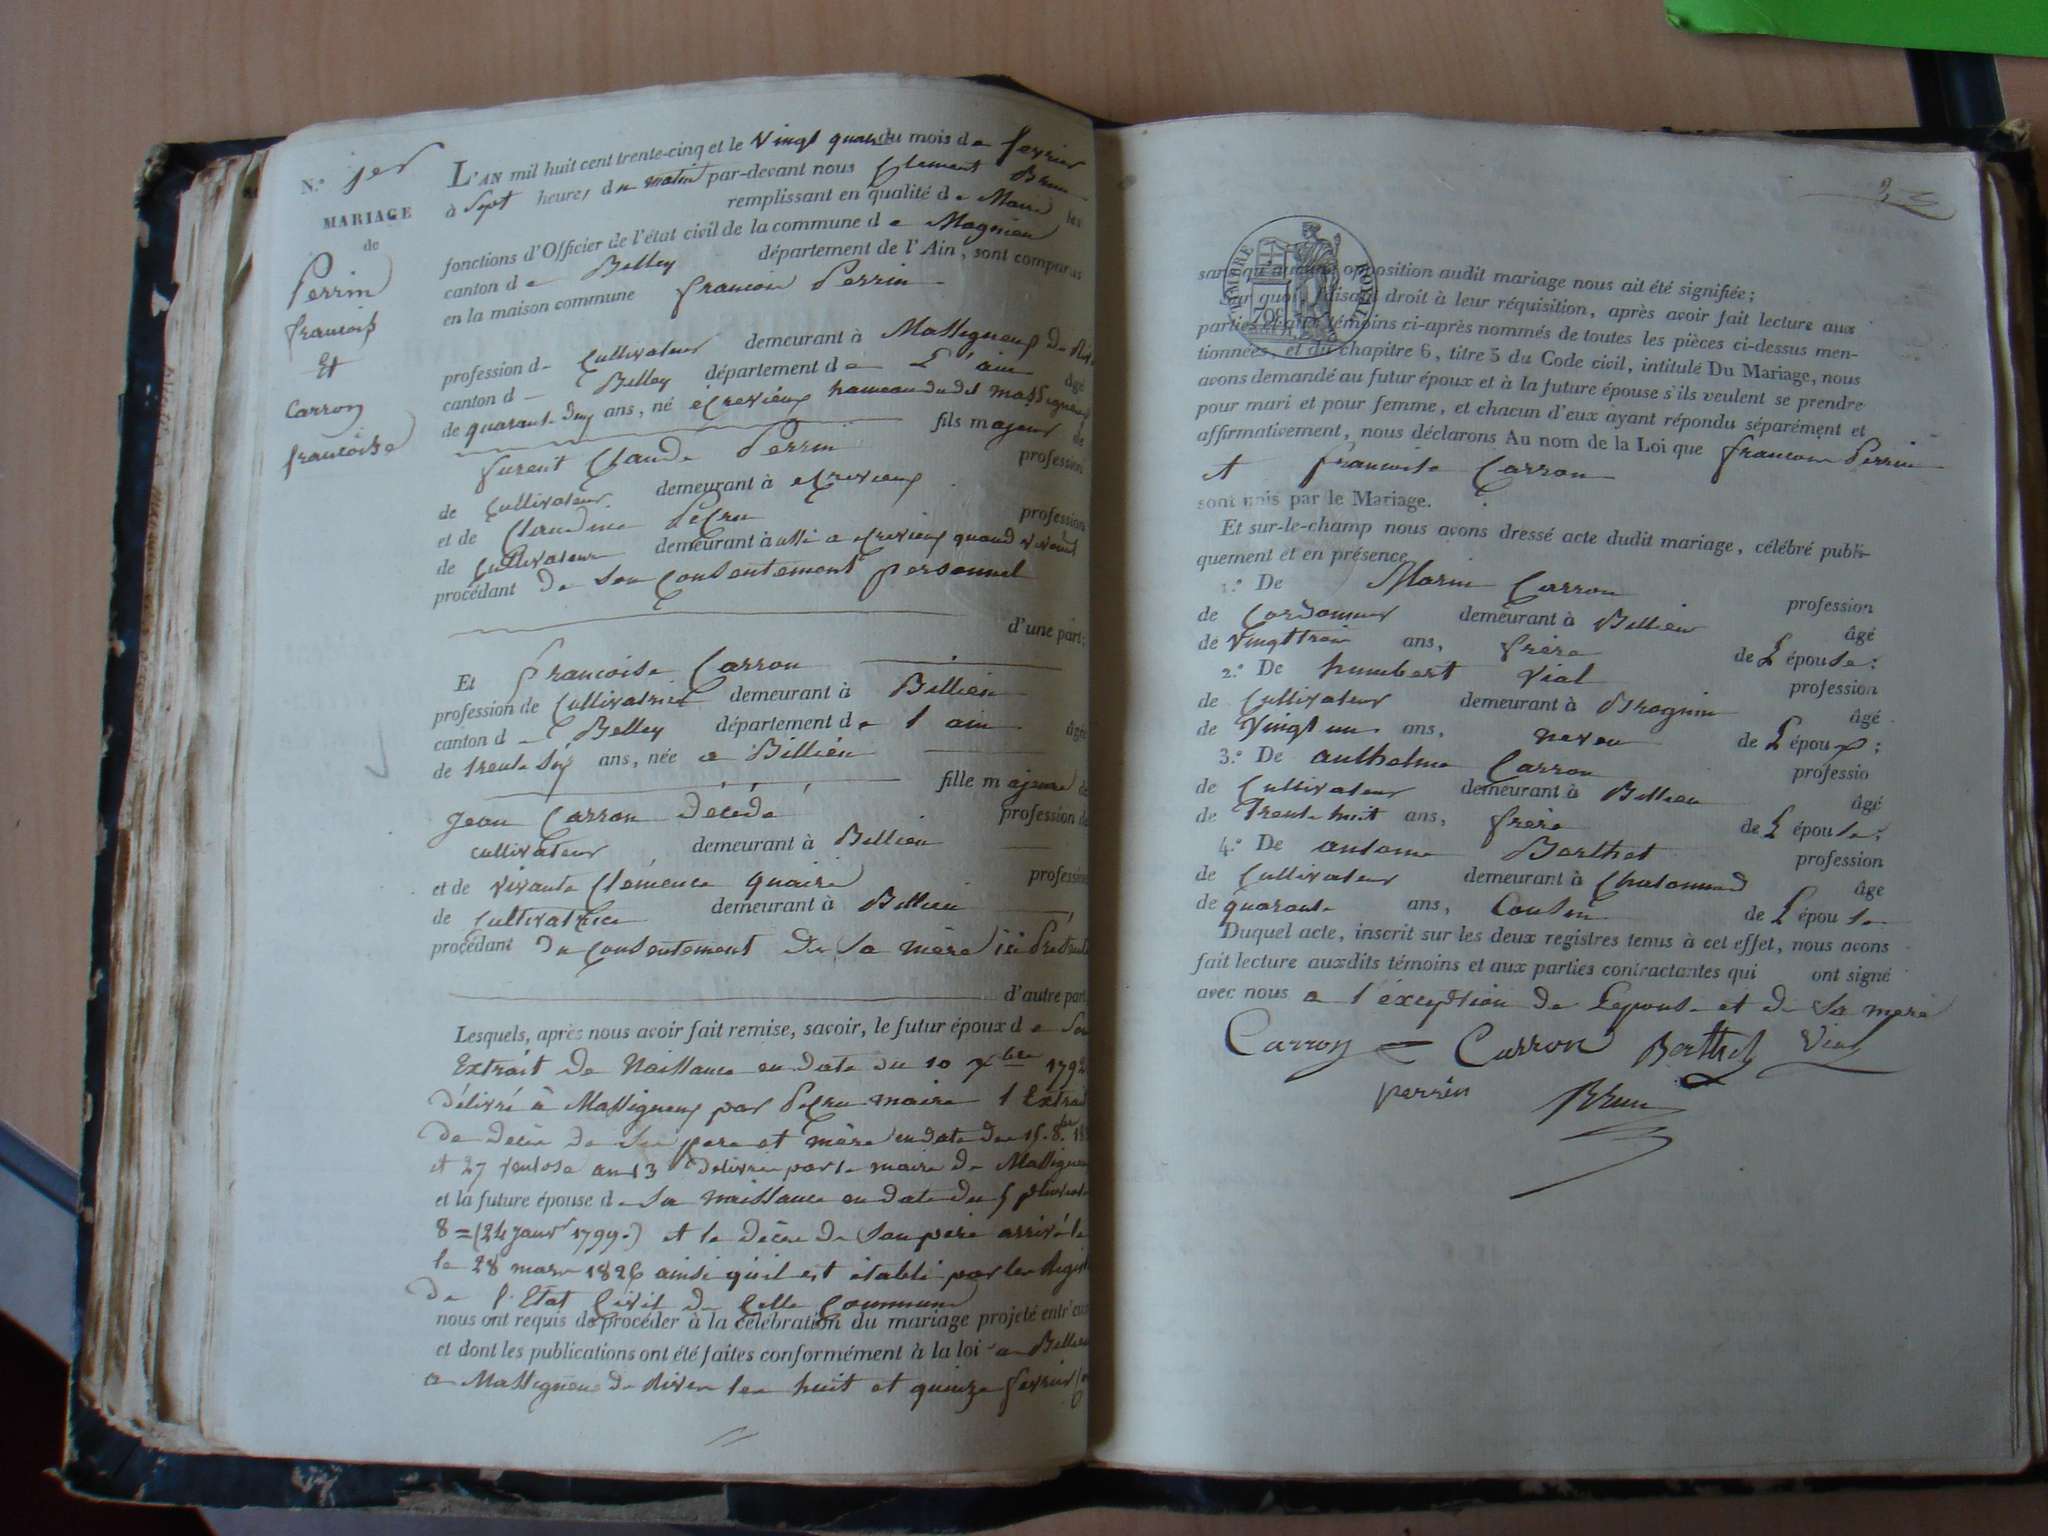 N.° 1er
MARIAGE
de
Perrin
francois
Et
Carron
francoise
L'AN mil huit cent trente-cinq et le vingt quatre du mois de fevrier
à Sept heures du matin par-devant nous Clement Brun
remplissant en qualité de Maire les
fonctions d'Officier de l'état civil de la commune de Magnieu
canton de Belley département de l'Ain, sont comparus
en la maison commune francois Perrin
profession de Cultivateur demeurant à Massigneux de
canton de Belley département de L'ain âgé
de quarante deux ans, né ecrevieux hameau dudit massigneux
fils majeur de
furent Claude Perrin profession
de Cultivateur demeurant à ecrevieux
et de Claudine Pecru profession
de Cultivateur demeurant à aussi a ecrevieux quand vivant
procédant de son consentement personnel
d'une part;
Et francoise Carron
profession de Cultivatrice demeurant à Billieu
canton de Belley département de l ain âgée
de trente six ans, née a Billieu
fille majeure de
Jean Carron décédé profession de
cultivateur demeurant à Billieu
et de vivante Clémence quaire profession
de Cultivatrice demeurant à Billieu
procédant du consentement de sa mère ici présente
d'autre part
Lesquels, après nous avoir fait remise, savoir, le futur époux de son
Extrait de Naissance en date du 10 1792
délivré à Massigneux par Pecru maire l Extrait
de décès de son pere et mère en date du 15. 8.bre
et 27 ventose an 13 délivrés par le maire de Massigneux
et la future épouse de sa naissance en date du 5 pluviose
8=(24 Janvr 1799.) et le décès de son père arrivé le
le 28 mars 1826 ainsi qu'il est établi par les Regist
de l'Etat Civil de Cette Commune
nous ont requis de procéder à la célébration du mariage projeté entr'eux
et dont les publications ont été faites conformément à la loi a Billieu
a Massigneux de Rives les huit et quinze fevrier
2
TIMBRE ROYAL
70c
sans qu'aucune opposition audit mariage nous ait été signifiée;
Sur quoi, faisant droit à leur réquisition, après avoir fait lecture aux
parties et aux témoins ci-après nommés de toutes les pièces ci-dessus men-
tionnées, et du chapitre 6, titre 5 du Code civil, intitulé Du Mariage, nous
avons demandé au futur époux et à la future épouse s'ils veulent se prendre
pour mari et pour femme, et chacun d'eux ayant répondu séparément et
affirmativement, nous déclarons Au nom de la Loi que francois Perrin
et francoise Carron
sont unis par le Mariage.
Et sur-le-champ nous avons dressé acte dudit mariage, célébré publi-
quement et en présence
1.° De Marin Carron profession
de Cordonnier demeurant à Billieu âgé
de vingt trois ans, frère de L épouse;
2.° De humbert Vial profession
de Cultivateur demeurant à âgé
de Vingt un ans, neveu de L époux;
3.° De anthelme Carron professio
de Cultivateur demeurant à Billieu âgé
de Trente huit ans, frère de L épouse;
4.° De antoine Berthet profession
de Cultivateur demeurant à Chatonnod âge
de quarante ans, Cousin de L épouse
Duquel acte, inscrit sur les deux registres tenus à cet effet, nous avons
fait lecture auxdits témoins et aux parties contractantes qui ont signé
avec nous a l'éxception de Lepouse et de sa mere
Carron Carron Berthet Vial
perrin Brun